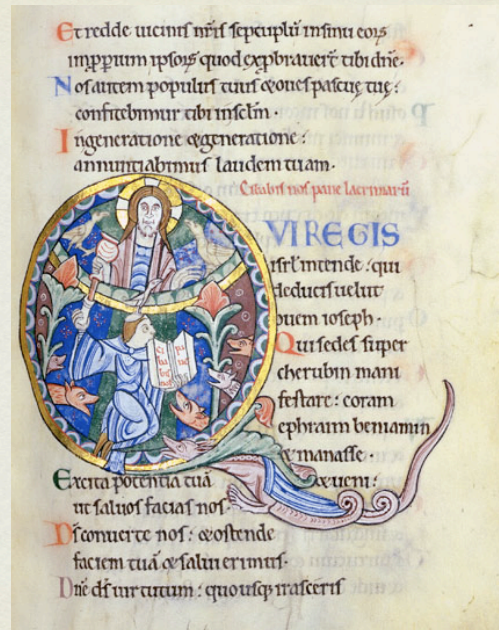 Et redde uicinis nr̄is septuplū insinu eorꝝ
imꝓꝑium ipsorꝝ quod exꝓbrauert̄ tibi dn̄e.
Nos autem populus tuus ⁊oues pascuę tuę:
confitebimur tibi insclm̄.
Ingeneratione ⁊generatione:
annuntiabimus laudem tuam.
Cibabis nos pane lacrimarū
QVI REGIS
isrl̄ intende: qui
deducis uelut
ouem ioseph.
Qui sedes super
cherubin mani
festare: coram
ephraim beniamin
⁊ manasse.
Excita potentia tuā ⁊ueni:
ut saluos facias nos.
Ds̄ conuerte nos: ⁊ostende
faciem tuā ⁊salui erimus.
Dn̄e ds̄ uirtutum: quousqꝫ irasceris